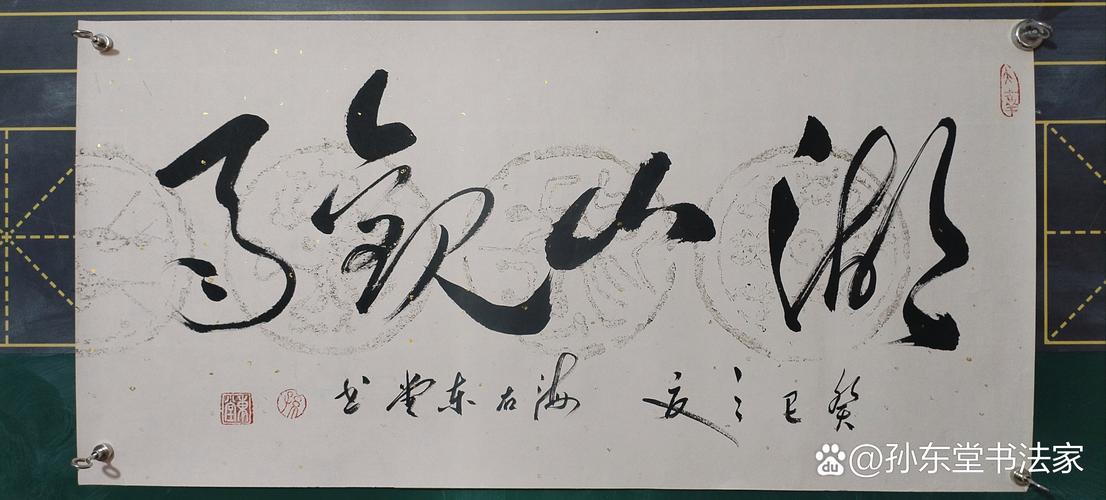 湖山观
癸巳之夏 海右东堂书
孙
東堂
Baidu @孙东堂书法家